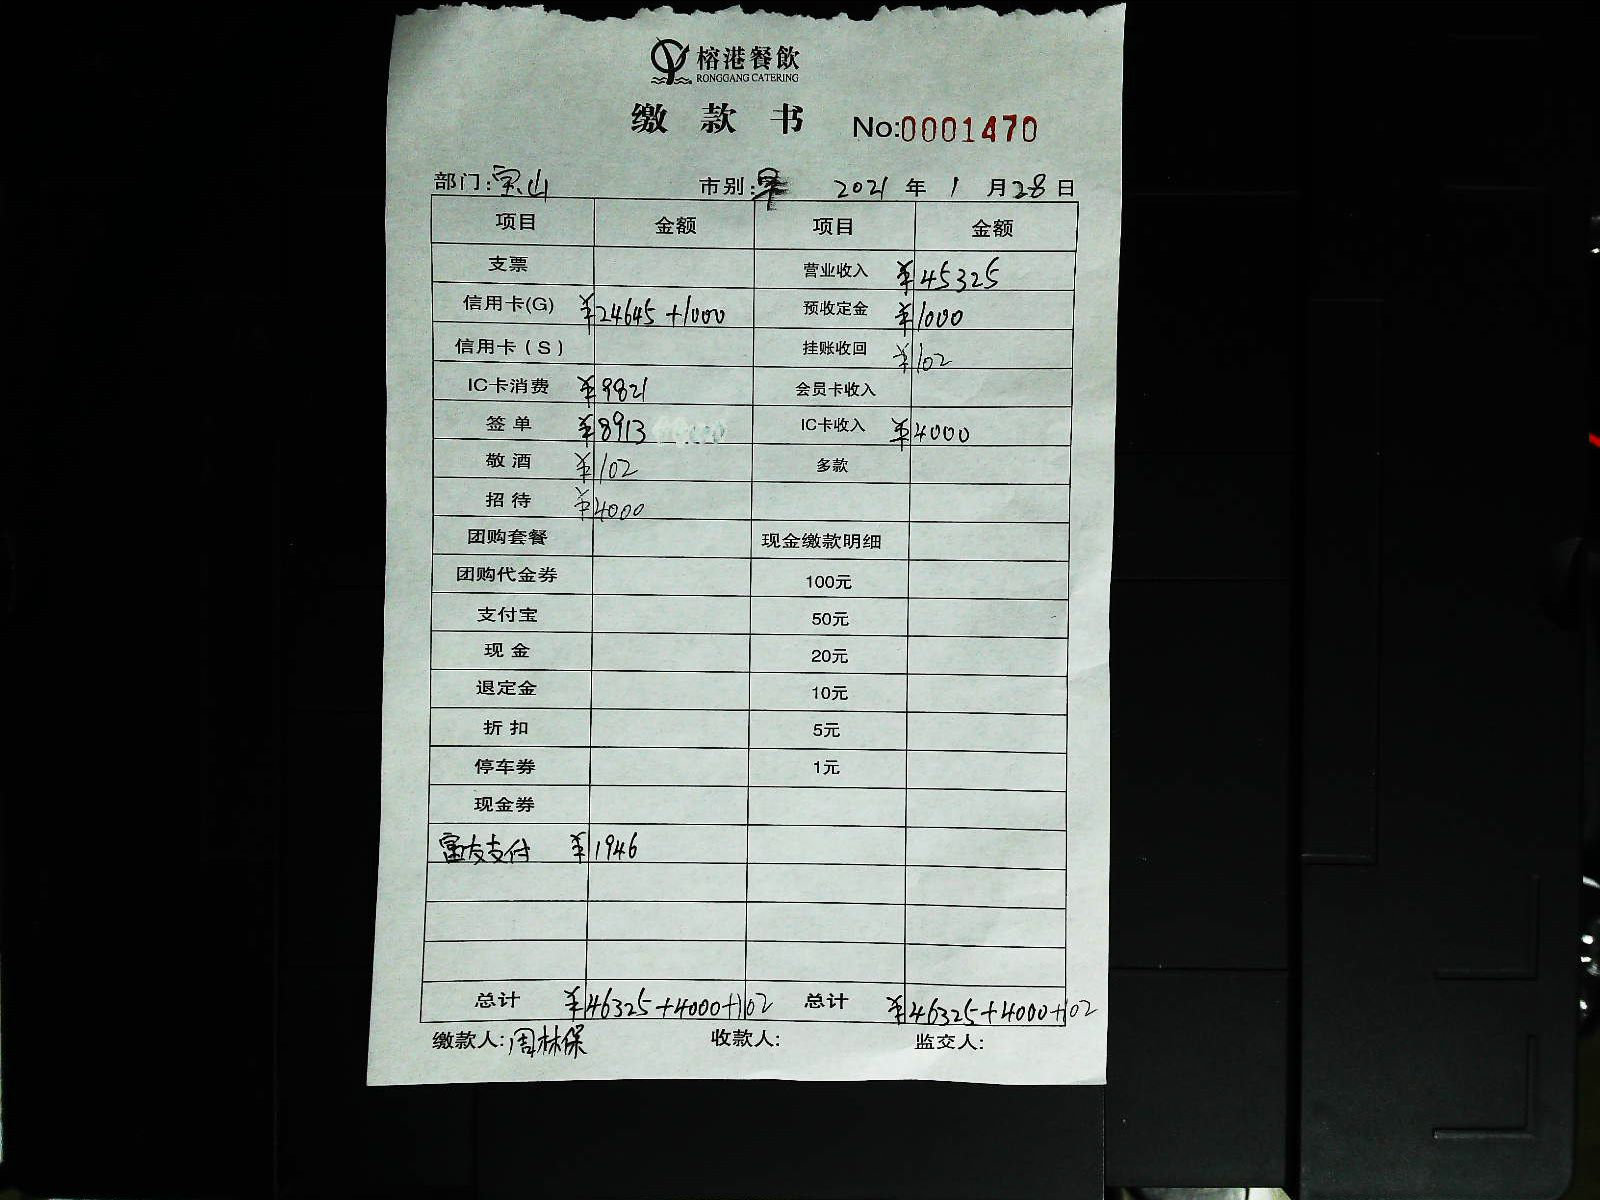 榕港餐飲
RONGGANG CATERING
缴 款 书 No:0001470
部门:宝山 市别:早 2021 年 1 月 28 日
项目 金额 项目 金额
支票 营业收入 ¥45325
信用卡(G) ¥24645+1000 预收定金 ¥1000
信用卡(S) 挂账收回 ¥102
IC卡消费 ¥9821 会员卡收入
签 单 ¥8913 IC卡收入 ¥4000
敬 酒 ¥102 多款
招 待 ¥4000
团购套餐 现金缴款明细
团购代金券 100元
支付宝 50元
现 金 20元
退定金 10元
折 扣 5元
停车券 1元
现金券
富友支付 ¥1946
总计 ¥46325+4000+102 总计 ¥46325+4000+102
缴款人:周林保 收款人: 监交人: